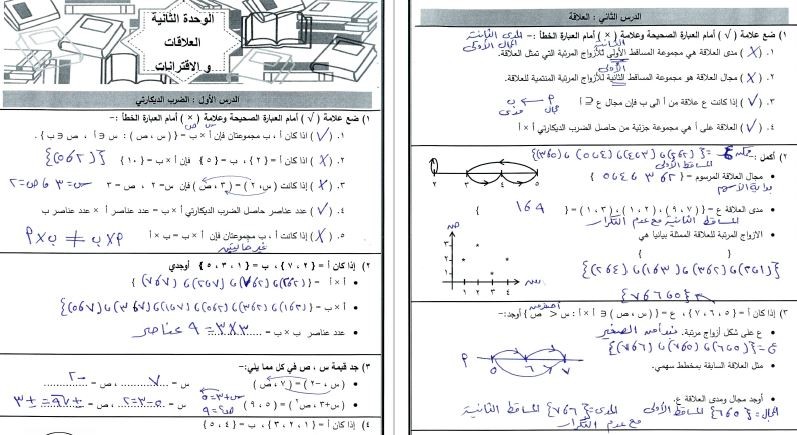 الوحدة الثانية
العلاقات
و الاقترانات
الدرس الأول: الضرب الديكارتي
١) ضع علامة ( √ ) أمام العبارة الصحيحة وعلامة ( × ) أمام العبارة الخطأ :-
١. (√) اذا كان أ ، ب مجموعتان فإن أ × ب = { ( س ، ص ) : س ∈ أ ، ص ∈ ب } .
٢. (X) اذا كان أ = { ٢ } ، ب = { ٥ } فإن أ × ب = { ١٠ } {(٢،٥)}
٣. (X) إذا كانت (س ، ٢) = (٣ ، ص) فإن س= ٢ ، ص = ٣ س=٣ ص=٢
٤. (√) عدد عناصر حاصل الضرب الديكارتي أ × ب = عدد عناصر أ × عدد عناصر ب
٥. (X) إذا كانت أ ، ب مجموعتان فإن أ × ب = ب × أ أ×ب ≠ ب×أ
غير خاليتين
٢) إذا كان أ = { ٢ ، ٧ } ، ب = { ١ ، ٣ ، ٥ } أوجدي
أ × أ = {(٢،٢) ، (٢،٧) ، (٧،٢) ، (٧،٧)}
أ × ب = {(٢،١) ، (٢،٣) ، (٢،٥) ، (٧،١) ، (٧،٣) ، (٧،٥)}
عدد عناصر ب × ب = ٣×٣ = ٩ عناصر
٣) جد قيمة س ، ص في كل مما يلي:-
(س ، -٢) = (٧ ، ص) س = ٧ ، ص = -٢
(س+٣ ، ص٢) = (٥ ، ٩) س+٣=٥ س = ٥-٣=٢ ، ص = ±√٩ = ±٣
ص٢=٩
٤) إذا كان أ = { ١ ، ٢ ، ٣ } ، ب = { ٤ ، ٥ }
الدرس الثاني : العلاقة
١) ضع علامة ( √ ) أمام العبارة الصحيحة وعلامة ( × ) أمام العبارة الخطأ :-
المدى الثانية
المجال الأولى
الثانية
١. (X) مدى العلاقة هي مجموعة المساقط الأولى للأزواج المرتبة التي تمثل العلاقة.
الأولى
٢. (X) مجال العلاقة هو مجموعة المساقط الثانية للأزواج المرتبة المنتمية للعلاقة.
٣. (√) إذا كانت ع علاقة من أ الى ب فإن مجال ع ⊆ أ
أ ← ب
مجال مدى
٤. (√) العلاقة على أ هي مجموعة جزئية من حاصل الضرب الديكارتي أ × أ
٢) أكمل :-
المساقط الأولى
مجال العلاقة المرسوم = {٢، ٣، ٤، ٥}
بداية الأسهم
٢ ٣ ٤ ٥
مدى العلاقة ع = { (٧ ، ٩) ، (٢ ، ١) ، (٣ ، ١) } = { }
المساقط الثانية مع عدم التكرار
الازواج المرتبة للعلاقة الممثلة بيانيا هي
ص
٣
٢
١
١ ٢ ٣ ٤
س
٣) إذا كان أ = { ٥ ، ٦ ، ٧ } ، ع = { (س ، ص) ∈ أ × أ : س < ص } أوجد:-
أصغر من
ع على شكل أزواج مرتبة. نبدأ من الصغير
ع={(٥،٦) ، (٥،٧) ، (٦،٧)}
مثل العلاقة السابقة بمخطط سهمي.
أ
٥ ٦ ٧
أوجد مجال ومدى العلاقة ع.
المجال={٥،٦} المساقط الأولى المدى={٦،٧} المساقط الثانية
مع عدم التكرار